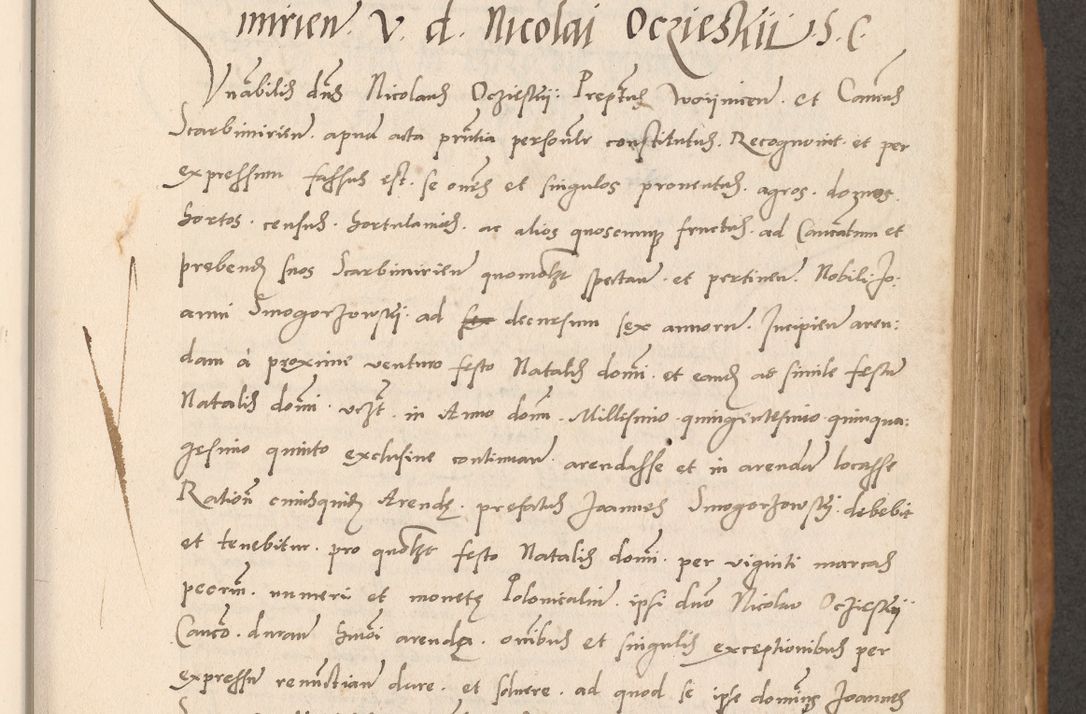 mirien. V. d. Nicolai Oczieskii S. C.
Vnabilis dns Nicolaus Ocziesky: Preptus Woijnicen. et Cancus
Scarbimirien. apud acta pntia personlr constitutus. Recognouit. et per
expressum fassus est. se ones et singulos prouentus. agros. domos.
hortos. census. hortulanias. ac alios quoscunqz fructus. ad Cancatum et
prebendam suos Scarbimirien quomolzt spectan. et pertinen. Nobili Jo:
anni Smogorzowsky. ad sex decursum sex annorum. Incipien aren:
dam à proxime venturo festo Natalis domi. et eand ac simile festum
Natalis domi. vczt. in Anno domi. Millesimo quingentesimo quinqua:
gesimo quinto exclusiue continuan arendasse et in arendam locasse
Ration cuiusquidem Arendę. prefatus Joannes Smogorzowsky. debebit
et tenebitur. pro quolzt festo Natalis domi. per viginti marcas
pecuniar. numeri et monetę Polonicalium. ipsi dno Nicolao Ocziesky
Canco. duran hmoi arenda. onibus et singulis exceptionibus per
expressum renunctian dare. et soluere. ad quod se ipse dominus Joannes